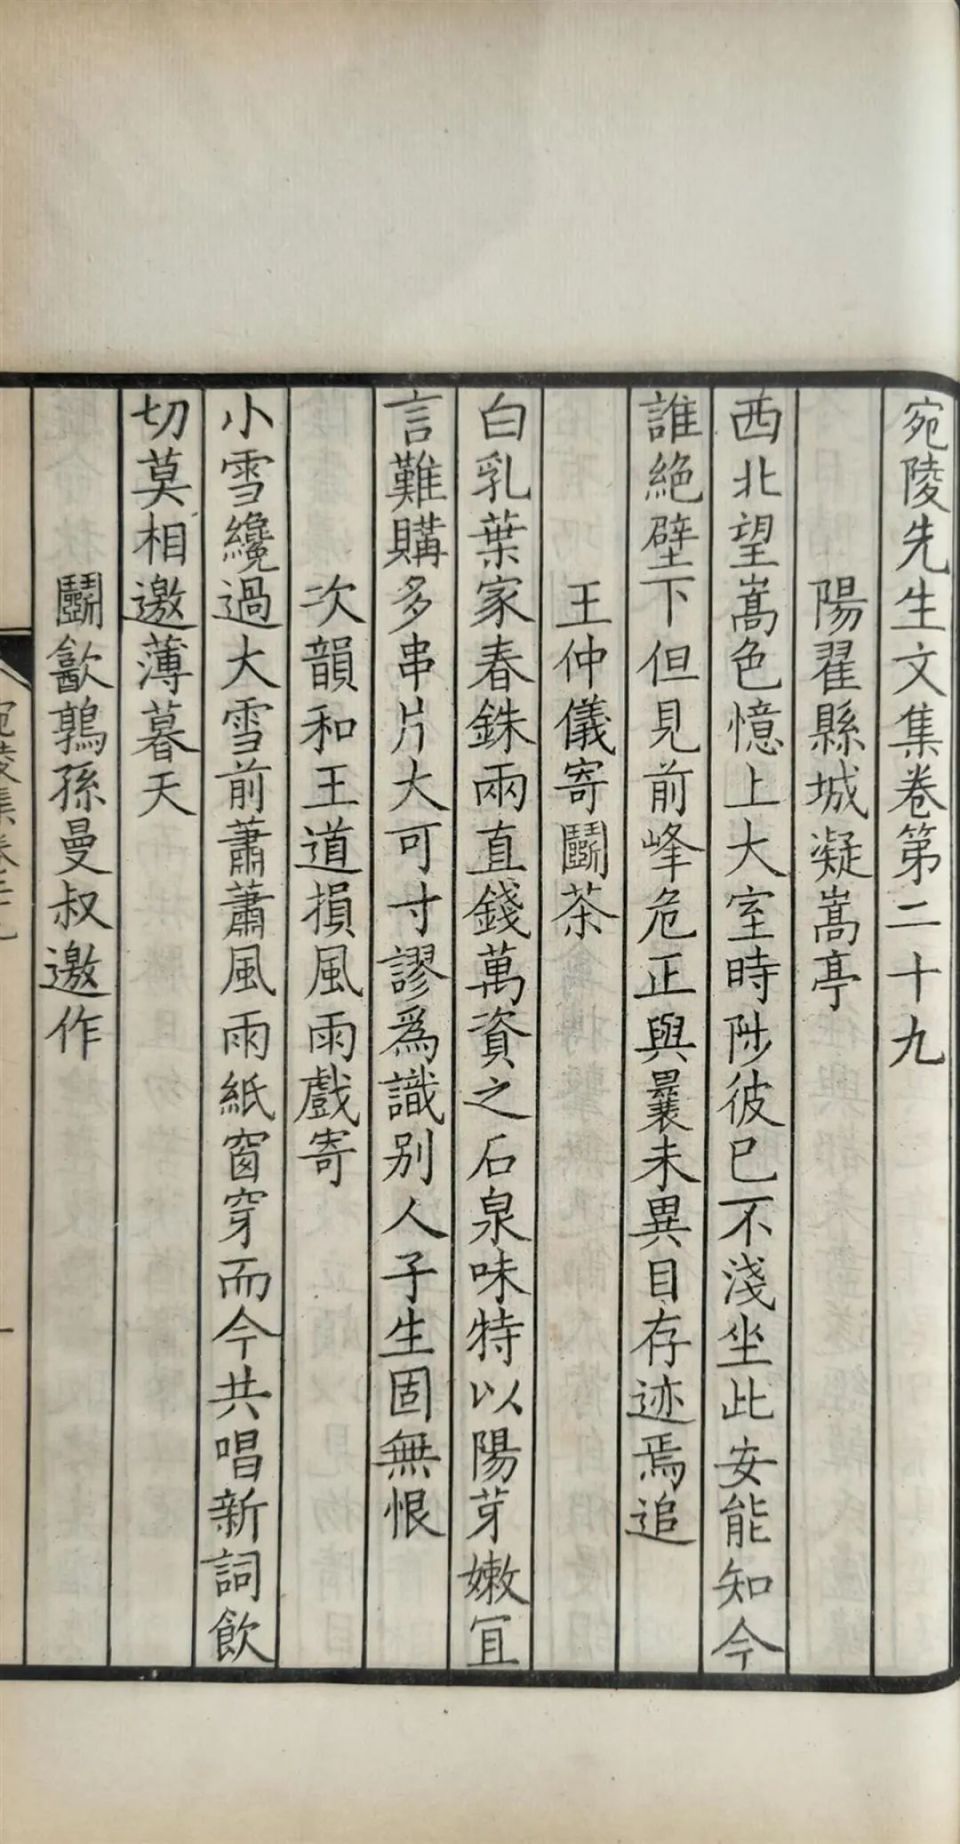 宛陵先生文集卷第二十九
陽翟縣城凝嵩亭
西北望嵩色憶上大室時陟彼已不淺坐此安能知今
誰絶壁下但見前峰危正與曩未異目存迹焉追
王仲儀寄鬭茶
白乳葉家春銖兩直錢萬資之石泉味特以陽芽嫩冝
言難購多串片大可寸謬爲識别人子生固無恨
次韻和王道損風雨戲寄
小雪纔過大雪前蕭蕭風雨紙窗穿而今共唱新詞飲
切莫相邀薄暮天
鬭鵪鶉孫曼叔邀作
宛陵集卷二十九
一